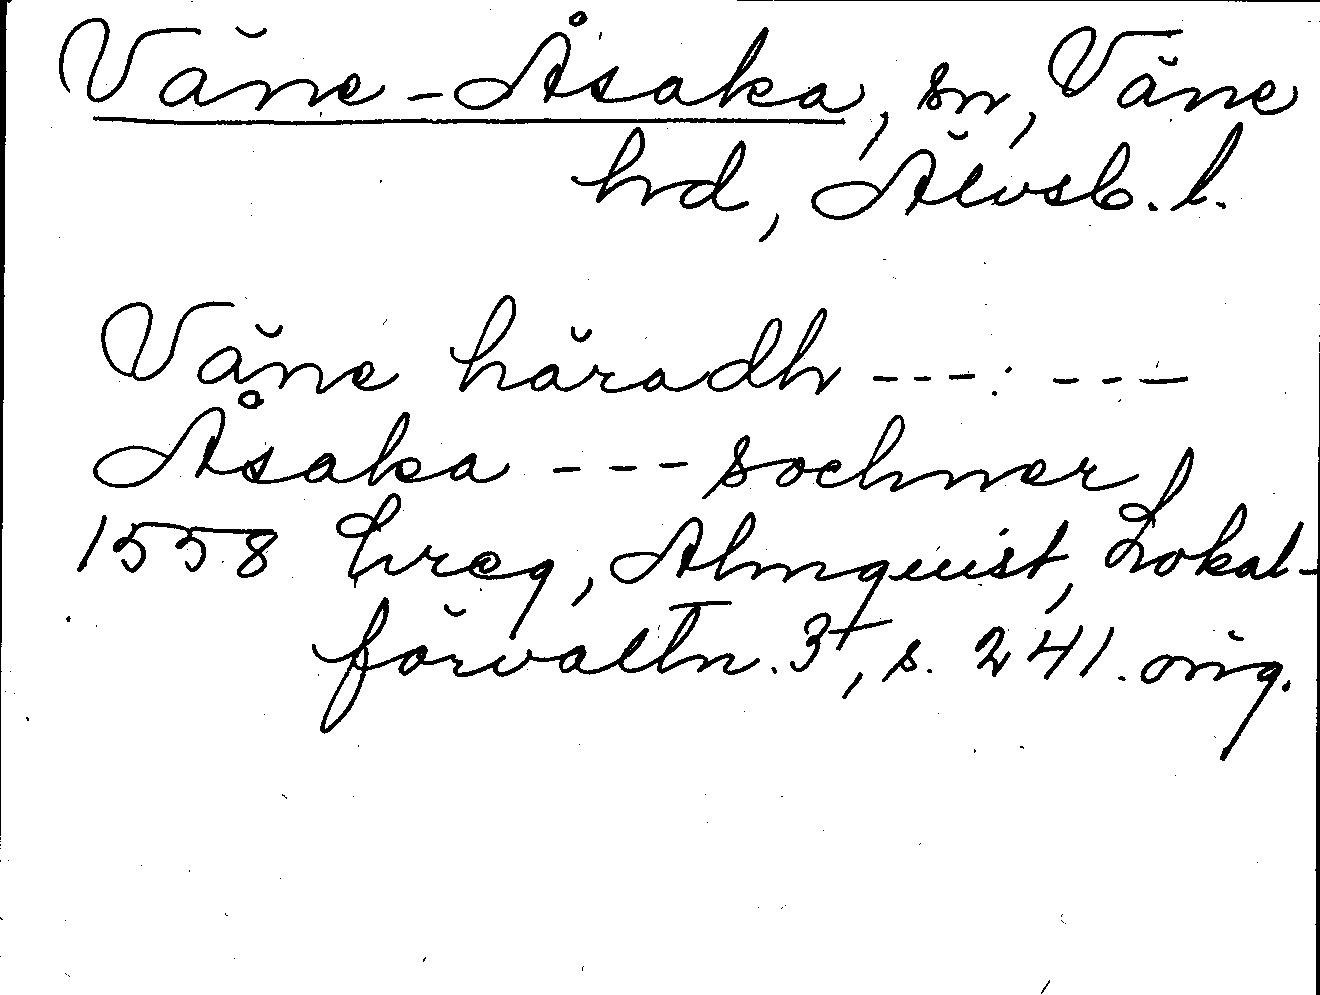 Väne-Åsaka, sn, Väne
hd, Älvsb. l.
Väne häradh ---: ---
Åsaka --- sochner
1558 hreg, Almquist, Lokal-
förvaltn. 3+, s. 241. orig.